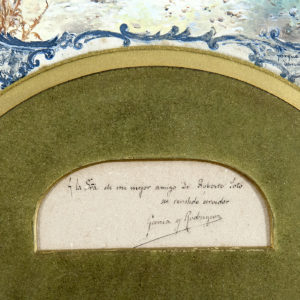 A la Sra. de mi mejor amigo de Roberto Soto
su rendido servidor
García y Rodríguez